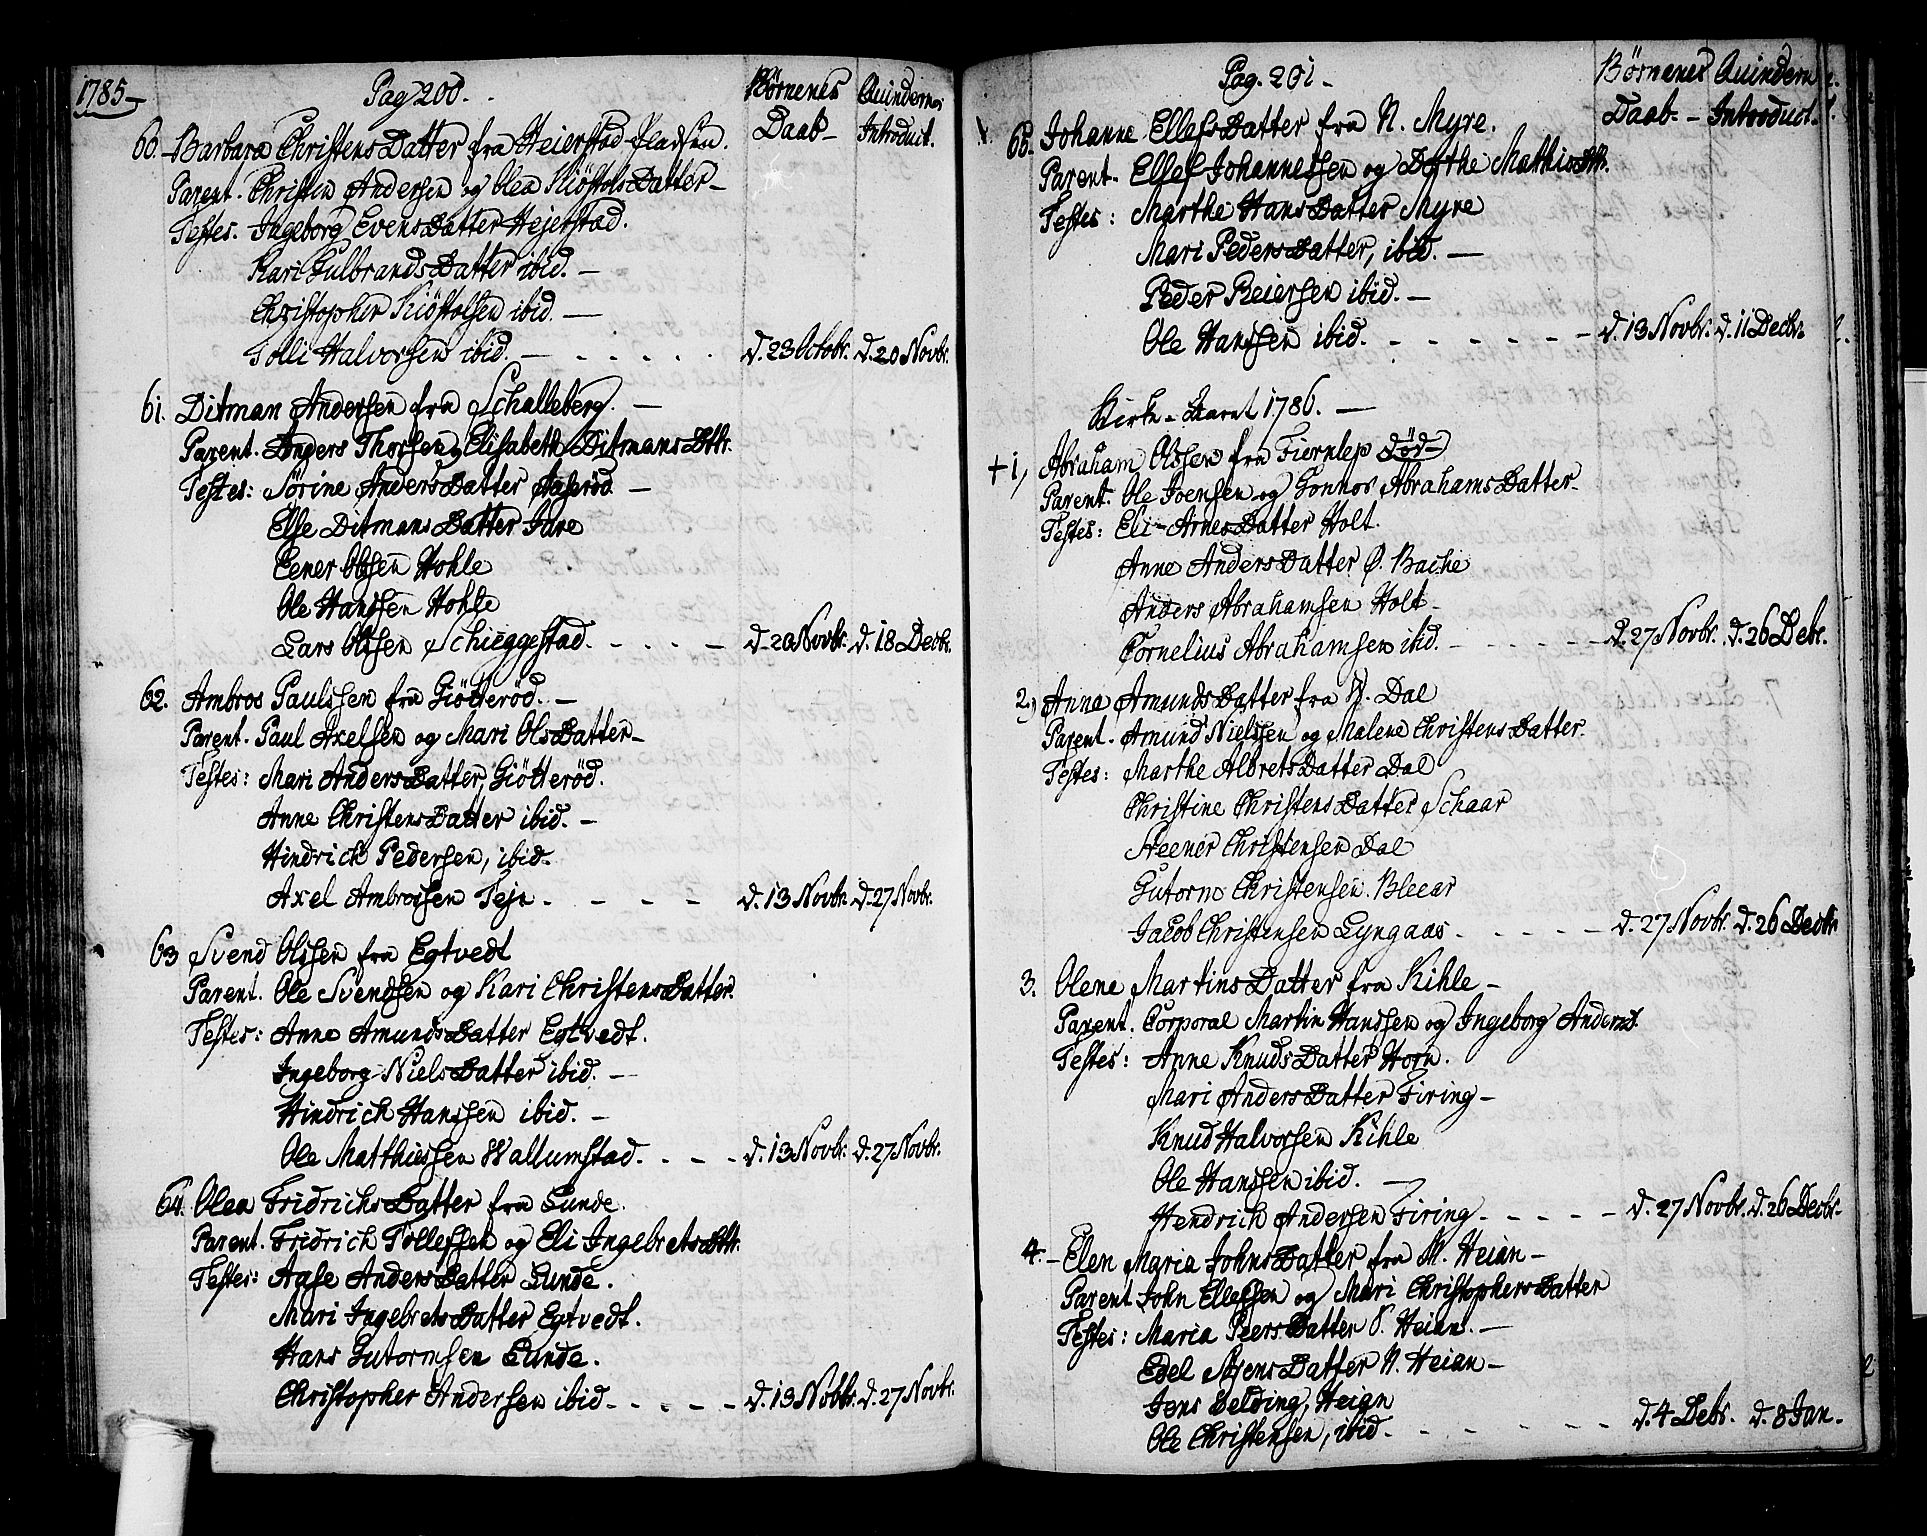 1785 -
Pag 200. -
Börnenes Quindernes
Daab - Introduct.
60. - Barbara Christens Datter fra Heierstad Pladsen.
Parent. Christen Andersen og Olea Kiöstols Datter -
Testes. Ingeborg Evens Datter Hejerstad.
Kari Gulbrands Datter ibid. -
Christopher Kiöstolsen ibid. -
Tolli Halvorsen ibid. - d. 23 Octobr. d. 20 Novbr.
61. Ditman Andersen fra Schalleberg. -
Parent. Anders Thorsen, Elisabeth Ditmans Dttr.
Testes: Sörine Anders Datter Aaseröd -
Else Ditmans Datter Jare
Eener Olssen Hohle
Ole Hanssen Hohle
Lars Olssen Schieggestad. - d. 20 Novbr. d. 18 Decbr.
62. Ambros Paulssen fra Giötteröd. -
Parent. Paul Axelsen og Mari Ols Datter -
Testes: Mari Anders Datter, Giötteröd.
Anne Christens Datter ibid. -
Hindrich Pedersen, ibid.
Axel Ambrossen Teje - d. 13 Novbr. d. 27 Novbr.
63 Svend Olssen fra Egtvedt
Parent. Ole Svendsen og Kari Christens Datter.
Testes: Anne Amunds Datter Egtvedt.
Ingeborg Niels Datter ibid. -
Hindrich Hanssen ibid. -
Ole Matthiessen Wallumstad. - d. 13 Novbr. d. 27 Novbr.
64. Olea Fridrichs Datter fra Sunde.
Parent. Fridrich Tollefsen og Eli Ingebrets Dttr.
Testes: Aase Anders Datter Sunde.
Mari Ingebrets Datter Egtvedt.
Hans Gutormsen Sunde.
Christopher Andersen ibid - d. 13 Nobbr. d. 27 Novbr.
Pag. 201 -
Börnenes Quindern
Daab. - Introduct.
65. Johanne Ellefs Datter fra N. Myre.
Parent. Ellef Johannessen og Dorthe Mathis Dttr.
Testes: Marthe Hans Datter Myre
Mari Peders Datter, ibid. -
Peder Reiersen ibid. -
Ole Hanssen ibid. - d. 13 Novbr. d. 11 Decbr.
Kirke-Aaret 1786. -
+ 1, Abraham Olssen fra Fiernlep död -
Parent. Ole Joensen og Gonnor Abrahams Datter -
Testes: Eli Arnes Datter Holt.
Anne Anders Datter Ø. Bache
Anders Abrahamsen Holt -
Cornelius Abrahamsen ibid. - d. 27 Novbr. d. 26 Debr.
2, Anne Amunds Datter fra W. Dal
Parent. Amund Nielssen og Malene Christens Datter.
Testes: Marthe Albrets Datter Dal
Christine Christens Datter Schaar
Steener Christensen Dal
Gutorm Christensen Bleear
Jacob Christensen Lyngaas - d. 27 Novbr. d. 26 Decbr
3. Olene Martins Datter fra Kihle -
Parent. Corporal Martin Hanssen og Ingeborg Andersd.
Testes: Anne Knuds Datter Horn.
Mari Anders Datter Firing -
Knud Halvorsen Kihle
Ole Hanssen ibid. -
Hendrich Andersen Firing - d. 27 Novbr. d. 26 Decbr.
4. - Elen Maria Johns Datter fra N. Heian -
Parent John Ellefsen og Mari Christophers Datter
Testes: Maria Peers Datter S. Heian. -
Edel Sörens Datter N. Heian -
Jens Selding, Heian
Ole Christensen, ibid. - d. 4 Debr. d. 8 Jan.